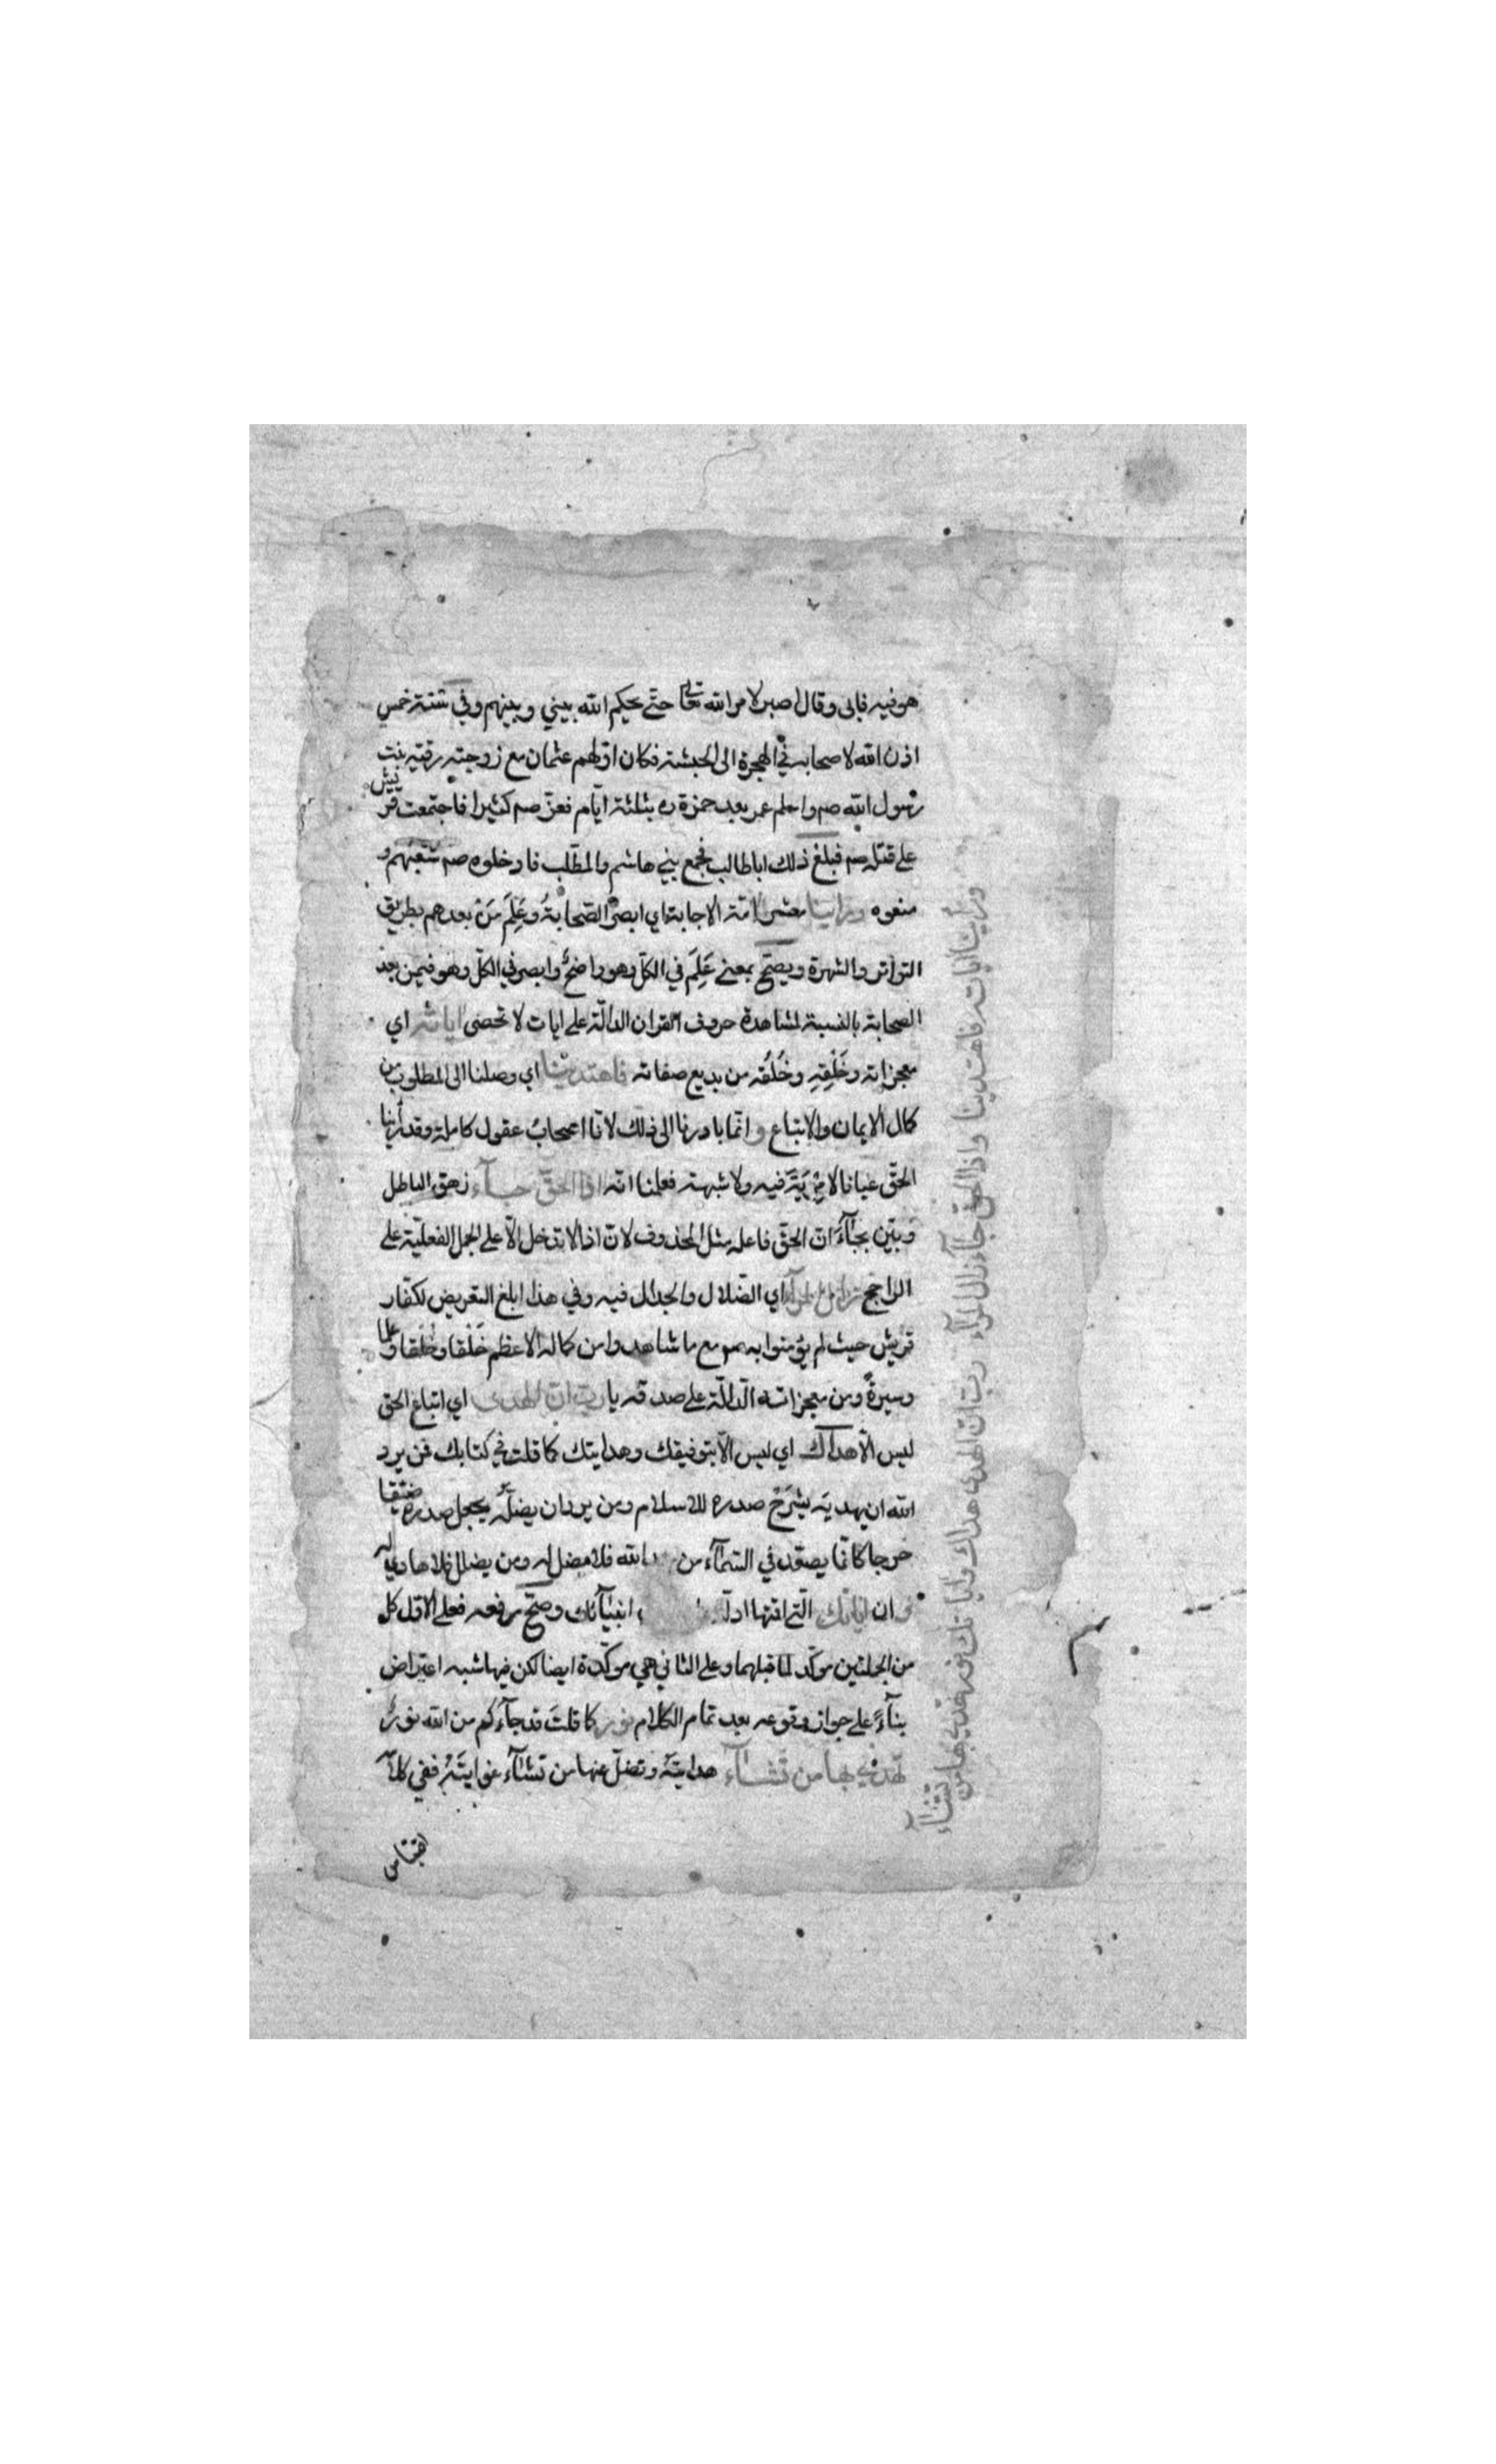 هو فيه فابى وقال اصبر لامر الله تعالى حتّى يحكم الله بيني وبينهم وفي سنة خمس
اذن الله لاصحابه في الهجرة الى الحبشة فكان اوّلهم عثمان مع زوجته رقيّه بنت
رسول الله صم واسلم عمر بعد حمزة ره بثلثة ايّام فعزّ صم كثيرا فاجتمعت قريش
على قتله صم فبلغ ذلك اباطالب فجمع بني هاشم والمطّلب فادخلوه صم شعبهم و
منعوه وراينا معشر امّة الاجابة اي ابصر الصّحابةُ وعَلِمَ مَنْ بعدهم بطريق
التواتر والشهرة ويصحّ بمعنى عَلِمَ في الكلّ وهو واضحٌ وابصر في الكلّ وهو فيمن بعد
الصحابة بالنسبة لمشاهدة حروف القران الدالّة على ايات لا تحصى اياته اي
معجزاته وخَلْقِهِ وخُلُقه من بديع صفاته فاهتدينا اي وصلنا الى المطلوب من
كمال الايمان والاتباع و انّما بادرنا الى ذلك لانّا اصحابُ عقول كاملة وقد أرينا
الحقّ عيانا لا مِرْيَةَ فيه ولا شبهة فعلمنا انّه اذا الحقّ جآء زهق الباطل
وبيّن بجآءَ انّ الحقّ فاعله مثل المحذوف لانّ اذا لا تدخل الّا على الجمل الفعليّة على
الراجح زال المرآء اي الضّلال والجدال فيه وفي هذا ابلغ التعريض لكفّار
قريش حيث لم يؤمنوا به صم مع ما شاهدوا من كماله الاعظم خَلْقا وخُلُقا وعلما
وسيرةً ومن معجزاته الدّالّة على صدقه يا ربّ انّ الهدى اي اتباع الحق
ليس الّا هداك اي ليس الّا بتوفيقك وهدايتك كما قلت في كتابك فمن يرد
الله ان يهديَه يشرَحْ صدره للاسلام ومن يرد ان يضلّه يجعل صدره ضيّقا
حرجا كانّما يصعّد في السّمآء من الله فلا مضلّ له ومن يضلل فلا هادي له
و ان اياتك الّتي اقتها انبيآئك وصحّ رفعه فعلى الاوّل كل
من الجملتين موكّد لما قبلهما وعلى الثاني هي موكّدة ايضا لكن فيها شبه اعتراض
بنآءً على جواز وقوعه بعد تمام الكلام نور كما قلتَ قد جآءكم من الله نورٌ
تهدي بها من تشآء هدايتَهُ وتضلّ عنها من تشآء غوايتَهُ ففي كلامه
اقتباس
وراينا اياته فاهتدينا واذا الحق جآء زال المرآء ربّ انّ الهدى هداك واياتك نور تهدي بها من
تشآء